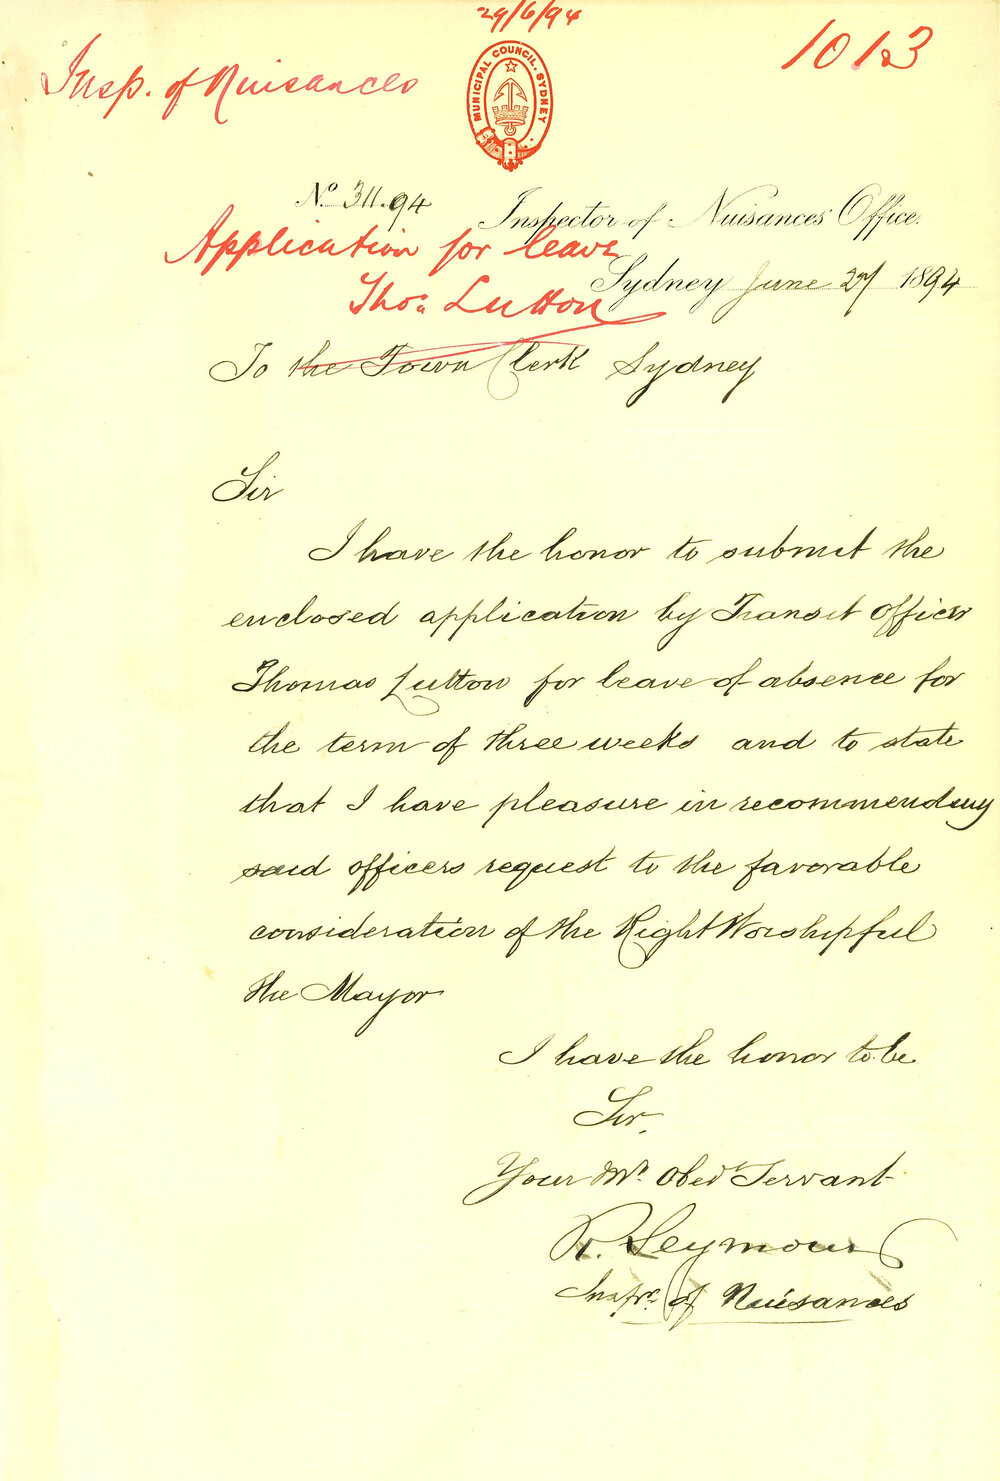 29/6/94
1013
Insp. of Nuisances
MUNICIPAL COUNCIL. SYDNEY
No 311.94
Inspector of Nuisances' Office.
Application for leave
Sydney June 27 1894
Thos. Lutton
To the Town Clerk Sydney
Sir
I have the honor to submit the
enclosed application by Transit officer
Thomas Lutton for leave of absence for
the term of three weeks and to state
that I have pleasure in recommending
said officers request to the favorable
consideration of the Right Worshipful
the Mayor
I have the honor to be
Sir,
Your Mt. Obedt Servant
R. Seymour
Inspr. of Nuisances